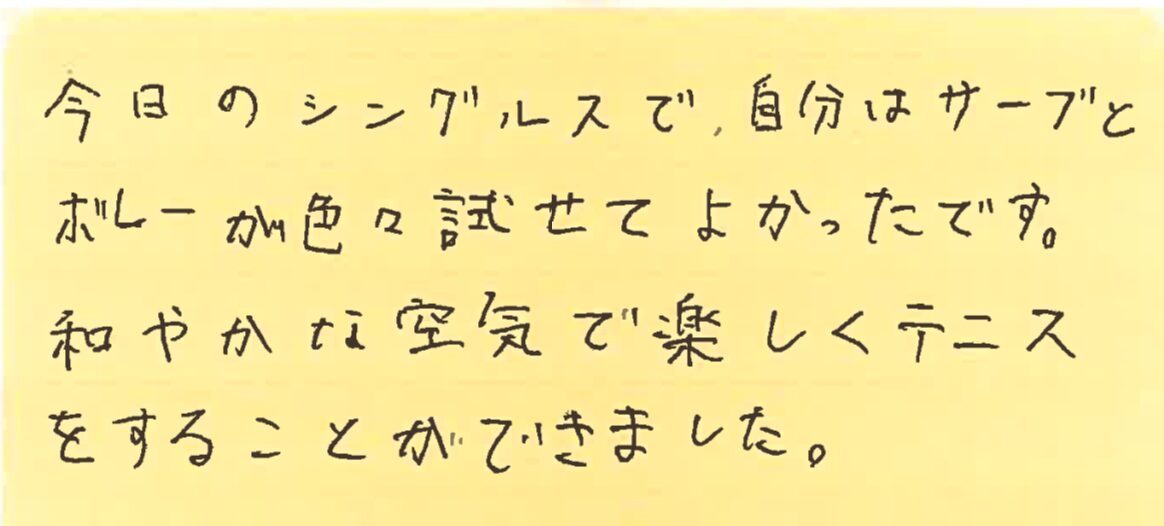 今日のシングルスで、自分はサーブと
ボレーが色々試せてよかったです。
和やかな空気で楽しくテニス
をすることができました。